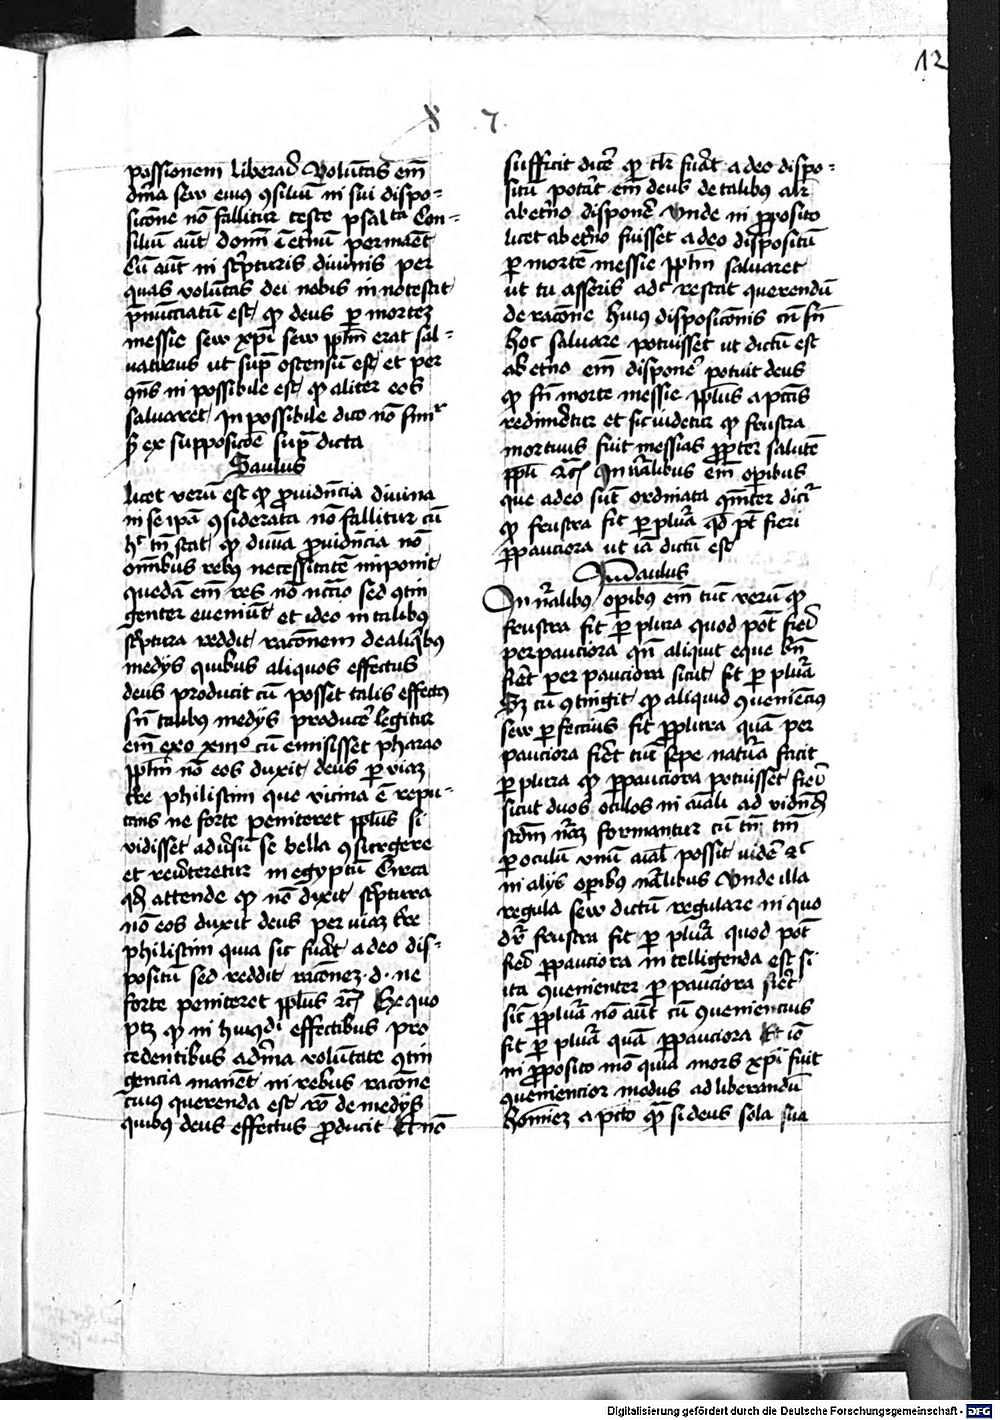 12
8 7
passionem liberarẽ Volũtas em̃
dĩna sew eius ꝯsiliũ in sui dispo-
sicõne nõ fallitur teste psalᵗᵃ Con-
siliũ aũt domĩ ĩ etnũ permãet
Cũ aũt in sc̃pturis diuinis per
quas volũtas dei nobis innotescit
p̃nũcciatũ est ꝙ deus ꝑ mortez
messie sew xp̃i sew ppl̃m erat sal-
uaturus ut sup̃ ostensũ est et per
ꝯñs inpossibile est ꝙ aliter eos
saluaret Inpossibile dico nõ simʳ
ꝫ ex supposicõe sup̃ dicta
Saulus
licet verũ est ꝙ ꝓuidñcia diuina
in se ipã ꝯsiderata nõ fallitur cũ
hᶜ tñ stat ꝙ diuĩa ꝓuidñcia nõ
om̃ibus rebꝰ necessitatẽ imponit
quedã em̃ res nõ ncĩo sed ꝯtin
genter eueniũt et ideo in talibus
sc̃ptura reddit racõnem de aliq̃bus
medijs quibus aliquos effectus
deus producit cũ posset talis effectꝰ
sñ talibus medijs producẽ legitur
em̃ exo xiiiᵒ cũ emisisset pharao
ppl̃m nõ eos duxit deus ꝑ viaz
tr̃e philistim que vicina ẽ repu-
tans ne forte peniteret ppl̃us si
vidisset adũsũ se bella ꝯsurgere
et reũteretur in egyptũ Circa
qđ attende ꝙ nõ dixit sc̃ptura
nõ eos duxit deus per viaz tr̃e
philistim quia sic fuãt a deo dis-
positũ sed reddit racõnez .d. ne
forte peniteret ppl̃us ꝛc̃ Ex quo
ptꝫ ꝙ in huiꝯdi effectibus pro
cedentibus a dĩna volũtate ꝯtin
gencia manet in rebus racõne
cuius querenda est rõ de medijs
quibꝰ deus effectus ꝓducit Et nõ
sufficit dicẽ ꝙ tl̃r fuãt a deo dispo-
situ potũit em̃ deus de talibus alr̃
ab etño disponẽ Vnde in ꝓposito
licet ab etño fuisset a deo dispositũ
ꝑ mortẽ messie ppl̃m saluaret
ut tu asseris adᶜ restat querendũ
de racõne huius disposicõnis cũ sñ
hoc saluare potuisset ut dictũ est
ab etño em̃ disponẽ potuit deus
ꝙ sñ morte messie ppl̃us a pcc̃is
redimẽtur et sic videtur ꝙ frustra
mortuus fuit messias ꝓpter salutẽ
ppl̃i ꝛc̃ In nãlibus em̃ oꝑibus
que a deo sũt ordinata cõmũter dicĩ
ꝙ frustra fit ꝑ plũa qđ pt̃ fieri
ꝑ pauciora ut iã dictũ est
Paulus
In nãlibus oꝑibꝰ em̃ tũc verũ ꝙ
frustra fit ꝑ plura quod pot̃ fieĩ
per pauciora qñ aliquit eque bñ
fieret per pauciora sicut fit ꝑ plũa
Sꝫ cũ ꝯtingit ꝙ aliquid ꝯueniencius
sew ꝑfectius fit ꝑ plura quã per
pauciora fieret tũc sepe natũa facit
ꝑ plura ꝙ ꝑ pauciora potuisset fieĩ
sicut duos oculos in aiãli ad vidñđ
scdm nãz formantur cũ tñ tm̃
ꝑ oculũ vnũ aial̃ possit videẽ ꝛc̃
in alijs oꝑibꝰ nãlibus Vnde illa
regula sew dictũ regulare in quo
dr̃ frustra fit ꝑ plũa quod pot̃
fieĩ ꝑ pauciora intelligenda est si
ita ꝯuenienter ꝑ pauciora fieret
sic̃ ꝑ plũa nõ aũt cũ ꝯueniencius
fit ꝑ plũa quã ꝑ pauciora Et iõ
in ꝓposito mõ quia mors xp̃i fuit
ꝯueniencior modus ad liberandũ
hom̃inez a pcc̃to ꝙ̃ si deus sola sua
Digitalisierung gefördert durch die Deutsche Forschungsgemeinschaft - DFG